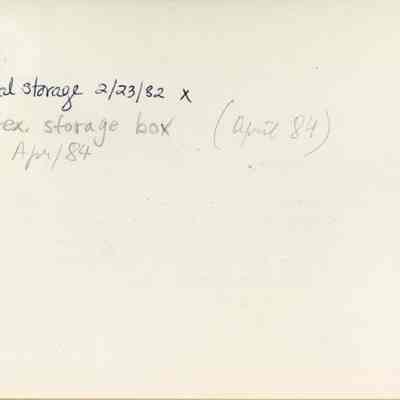 al storage 2/23/82 x
ex. storage box (April 84)
Apr/84